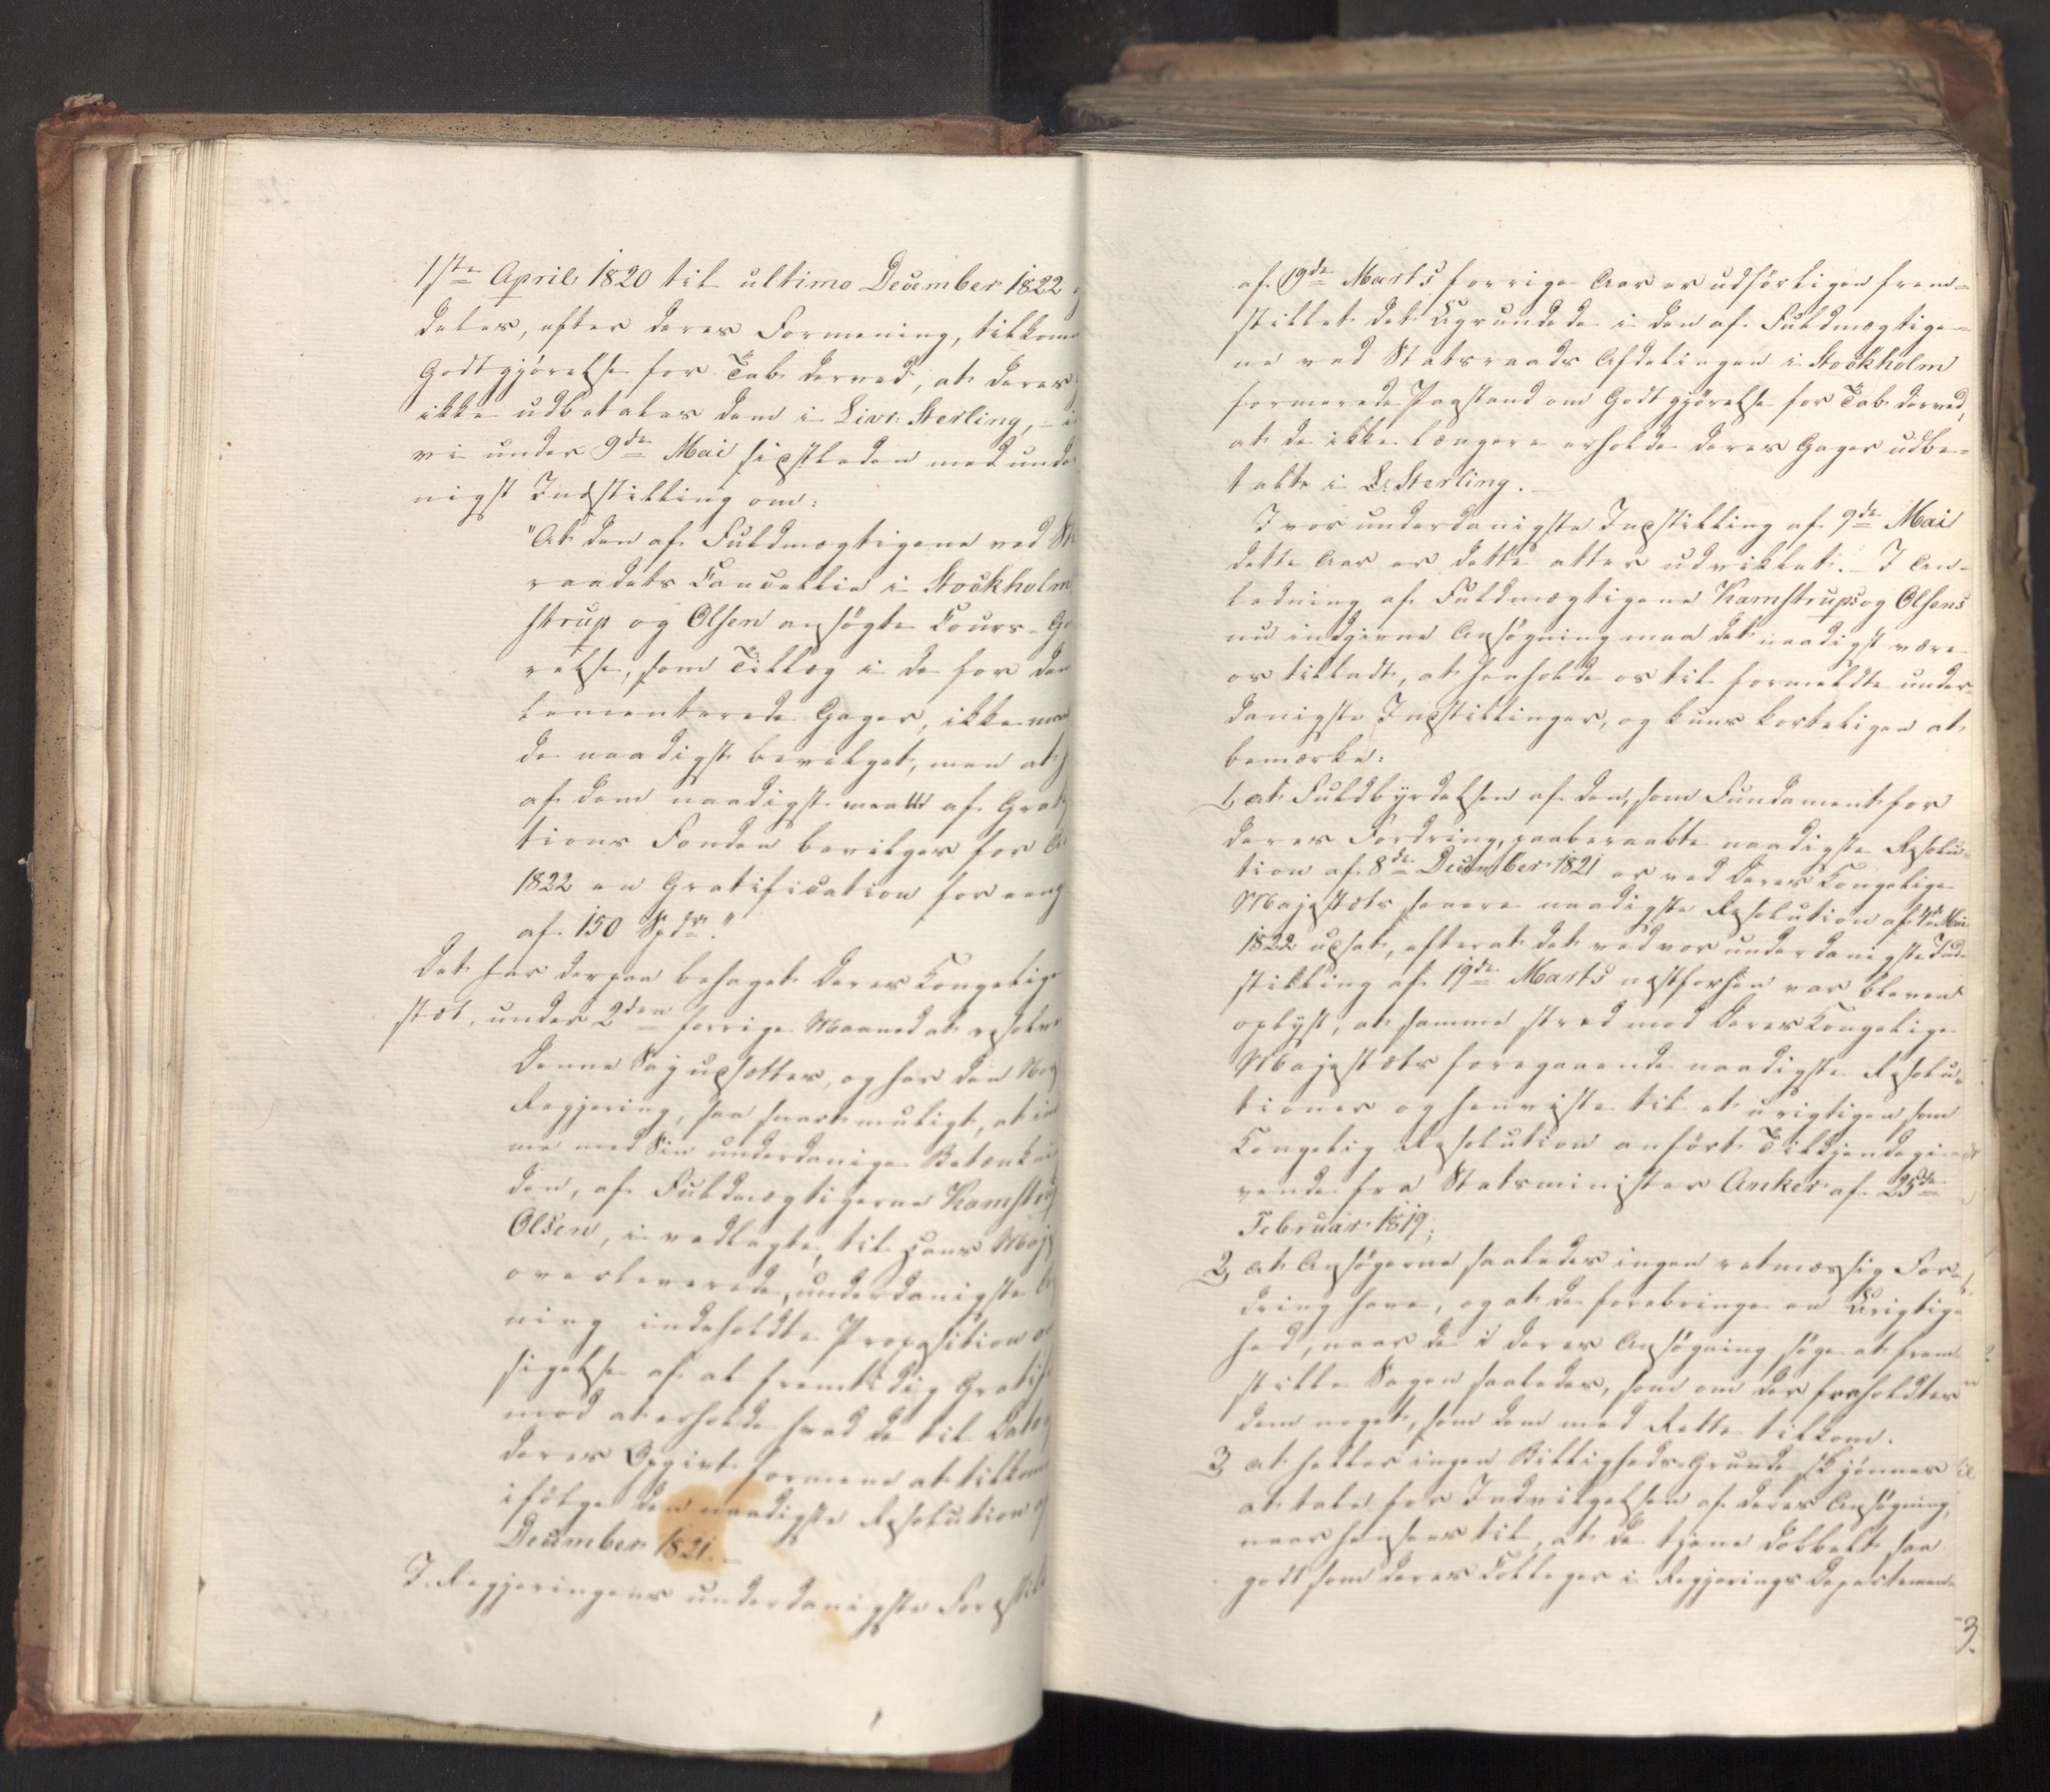 1ste April 1820 til ultimo December 1822
deles, efter deres Formening, tilkom
Godtgjørelse for Tab derved, at deres
ikke udbetales dem i Livr: Sterling, –
vi under 9de Mai sidstleden med unde
nigst Indstilling om:
"At den af Fuldmægtigene ved St
raadets Cancellie i Stockholm
strup og Olsen ansøgte Cours-Go
relse, som Tillæg i de for dem
lementerede Gager, ikke maa
de naadigst bevilget, men at
af dem naadigst maatte af Grat
tions Fonden bevilges for A
1822 en Gratification for eng
af 150 Spdr."
Det har derpaa behaget Deres Kongelige
stæt, under 2den forrige Maaned at resolve
Denne Sag udsættes, og har den No
Regjering, saa snart muligt, at in
me med Sin underdanige Betænkni
den, af Fuldmægtigerne Kamstru
Olsen, i vedlagte, til Hans Maj
overleverede, underdanigste
ning indeholdte Proposition
sigelse af al fremtidig Gratifi
mod at erholde hvad de til Dato
deres Opgivt formene at tilkom
ifølge den naadigste Resolution af
December 1821.–
I Regjeringens underdanigste Forestill
af 19de Marts forrige Aar er udførligen frem-
stillet det Ugrundede i den af Fuldmægtige-
ne ved Statsraads Afdelingen i Stockholm
formerede Paastand om Godtgjørelse for Tab derved,
at de ikke længere erholde deres Gager udbe-
talte i L. Sterling.
I vor underdanigste Indstilling af 9de Mai
dette Aar er dette atter udviklet. – I An-
ledning af Fuldmægtigene Kamstrups og Olsens
nu indgivne Ansøgning maa det naadigst være
os tilladt, at henholde os til formeldte under-
danigste Indstillinger, og kuns korteligen at
bemærke:
1, at Fuldbyrdelsen af den, som Fundament for
deres Fordring, paaberaabte naadigste Resolu-
tion af 8de December 1821 er ved Deres Kongelige
Majestæts senere naadigste Resolution af 4de Mai
1822 udsat, efterat det ved vor underdanigste Ind-
stilling af 19de Marts næstforhen var bleven
oplyst, at samme stred mod Deres Kongelige
Majestæts foregaaende naadigste Resolu-
tioner og henviste til et urigtigen som
Kongelig Resolution anført Tilkjendegi-
vende fra Statsminister Anker af 25de
Februar 1819;
2, at Ansøgerne saaledes ingen retmæssig For-
dring have, og at de forebringe en Urigtig-
hed, naar de i deres Ansøgning søge at frem-
stille Sagen saaledes, som om der forholdtes
dem noget, som dem med Rette tilkom.
3, at heller ingen Billigheds Grunde skjønnes
at tale for Indvilgelsen af deres Ansøgning,
naar hensees til, at de tjene dobbelt saa
godt som deres Colleger i Regjerings Departemen-
3.